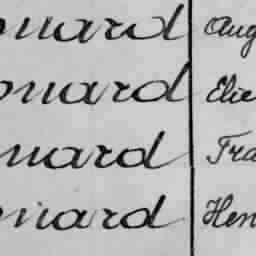 ouard Aug
ouard Elie
uard Fra
ouard Hen